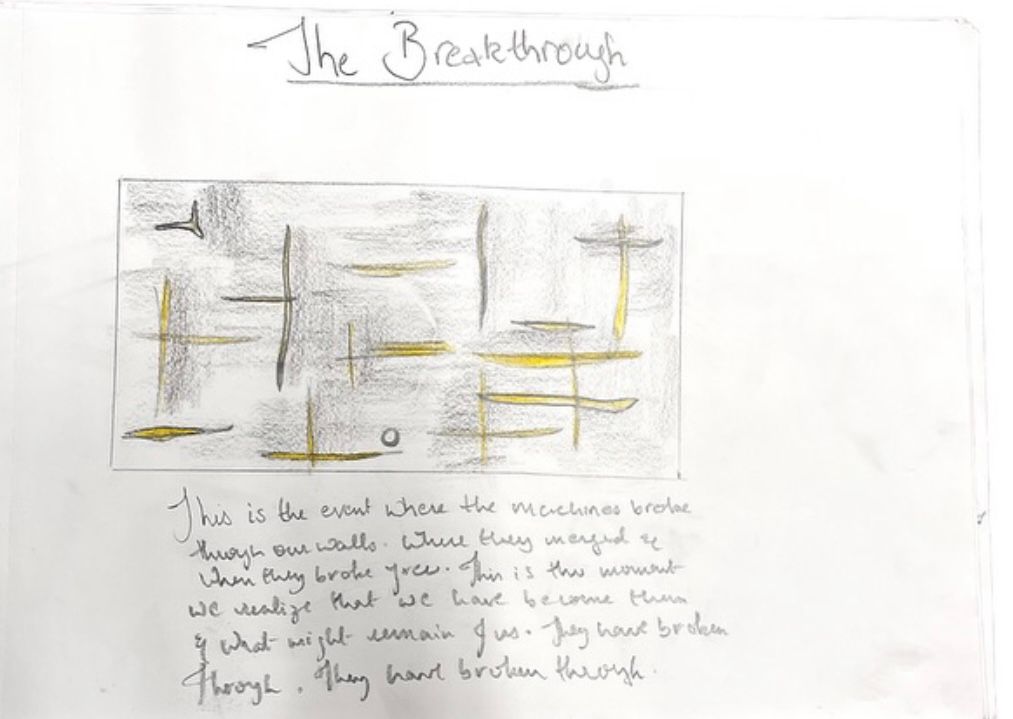 The Breakthrough
This is the event where the machines broke
through our walls. Where they merged &
when they broke free. This is the moment
we realize that we have become them
& what might remain of us. They have broken
through. They have broken through.